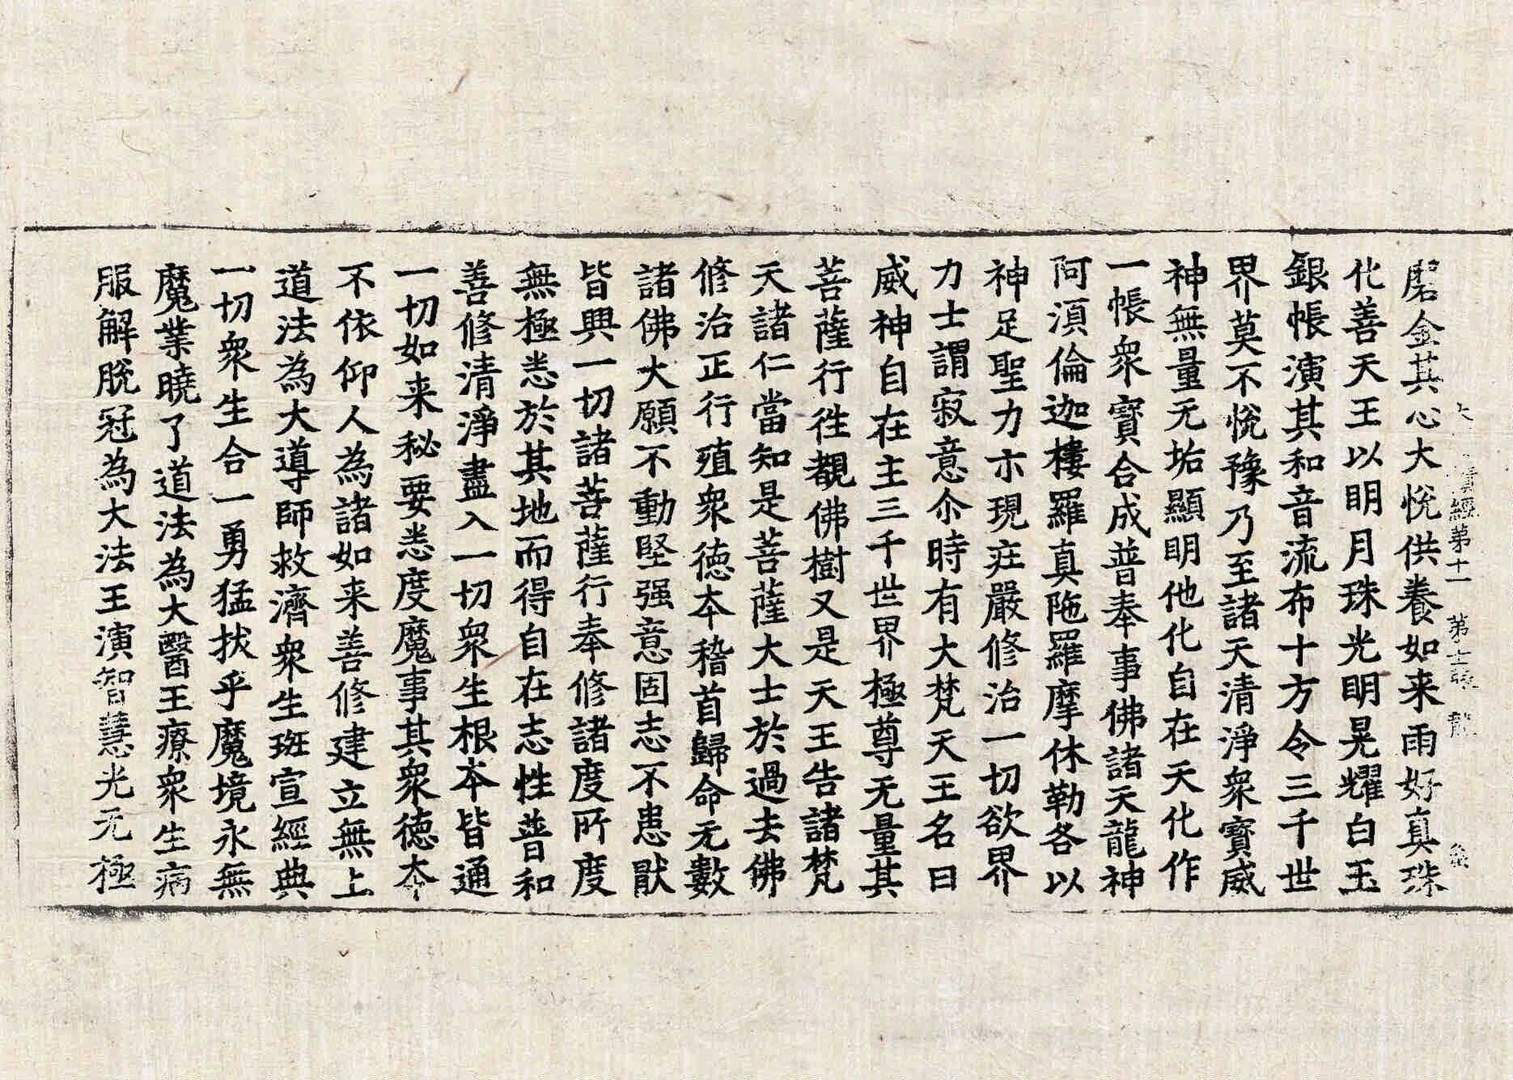 磨金其心大悅供養如来雨好真珠
經第十一 第十二張 龍
化善天王以明月珠光明晃耀白玉
銀帳演其和音流布十方令三千世
界莫不悅豫乃至諸天清淨衆寳威
神無量无垢顯明他化自在天化作
一帳衆寳合成普奉事佛諸天龍神
阿湏倫迦樓羅真陁羅摩休勒各以
神足聖力亦現莊嚴修治一切欲界
力士謂寂意尒時有大梵天王名曰
威神自在主三千世界極尊无量其
菩薩行徃覩佛樹又是天王告諸梵
天諸仁當知是菩薩大士於過去佛
修治正行殖衆徳夲稽首歸命无數
諸佛大願不動堅强意固志不患猒
皆興一切諸菩薩行奉修諸度所度
無極悉於其地而得自在志性普和
善修清淨盡入一切衆生根夲皆通
一切如来秘要悉度魔事其衆徳夲
不依仰人為諸如来善修建立無上
道法為大導師救濟衆生班宣經典
一切衆生合一勇猛拔乎魔境永無
魔業曉了道法為大醫王療衆生病
服解脫冠為大法王演智慧光无極